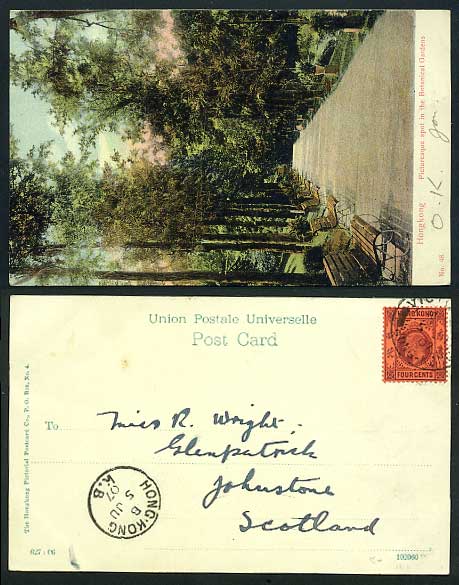 Hongkong Picturesque spot in the Botanical Gardens
No. 48
O.K. Jon.
Union Postale Universelle
Post Card
HONG KONG
FOUR CENTS
The Hongkong Pictorial Postcard Co., P. O. Box, No. 4.
To Miss R. Wright.
Glenpatrick
Johnstone
Scotland
HONG-KONG
B
5 JU
07
K.B
102960